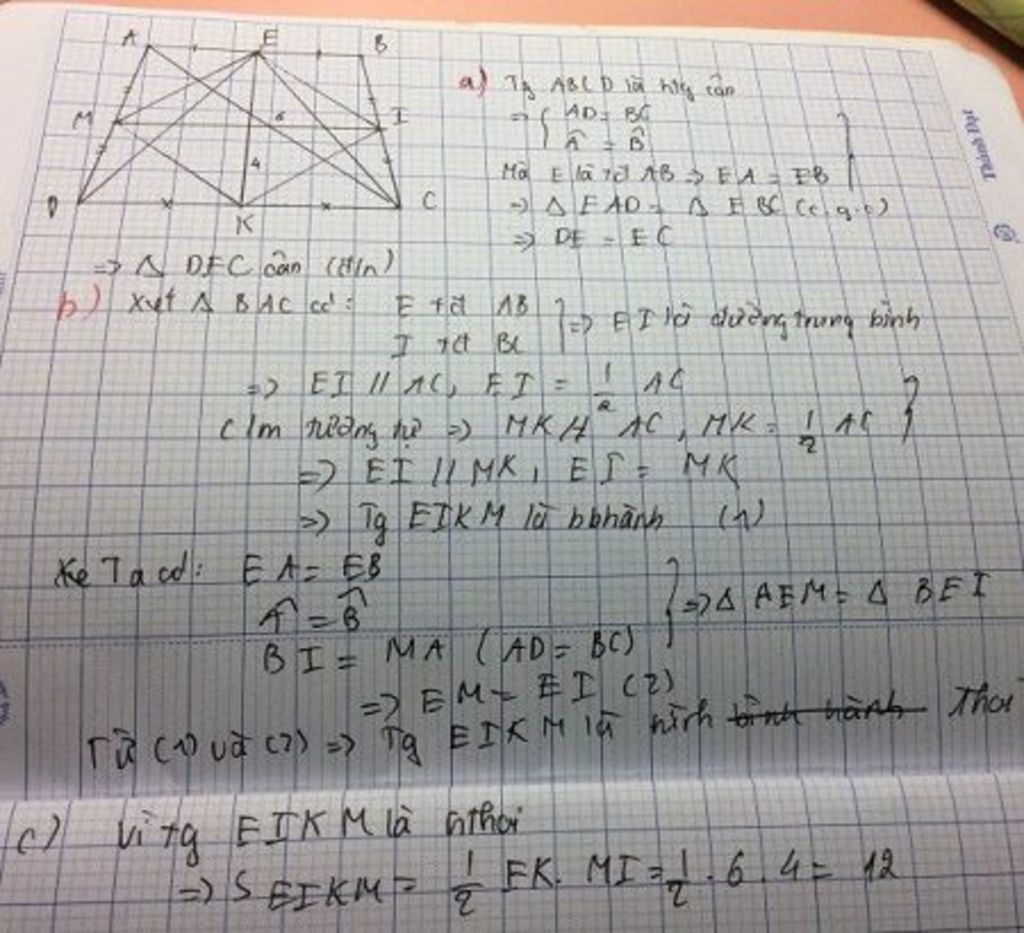 A E B
M 6 I
4
D K C
a) Tg ABCD là htg cân
=> { AD = BC
Â = B̂ }
Mà E là tđ AB => EA = EB
=> Δ EAD = Δ EBC (c.g.c)
=> DE = EC
=> Δ DEC cân (đ/n)
b) Xét Δ BAC có: E tđ AB
I tđ BC } => EI là đường trung bình
=> EI // AC, EI = 1/2 AC
C/m tương tự => MK // AC, MK = 1/2 AC }
=> EI // MK, EI = MK
=> Tg EIKM là hbhành (1)
Ta có: EA = EB
Â = B̂ } => Δ AEM = Δ BEI
BI = MA (AD = BC)
=> EM = EI (2)
Từ (1) và (2) => Tg EIKM là hình bình hành Thoi
c) Vì tg EIKM là hthoi
=> S EIKM = 1/2 EK. MI = 1/2 . 6 . 4 = 12